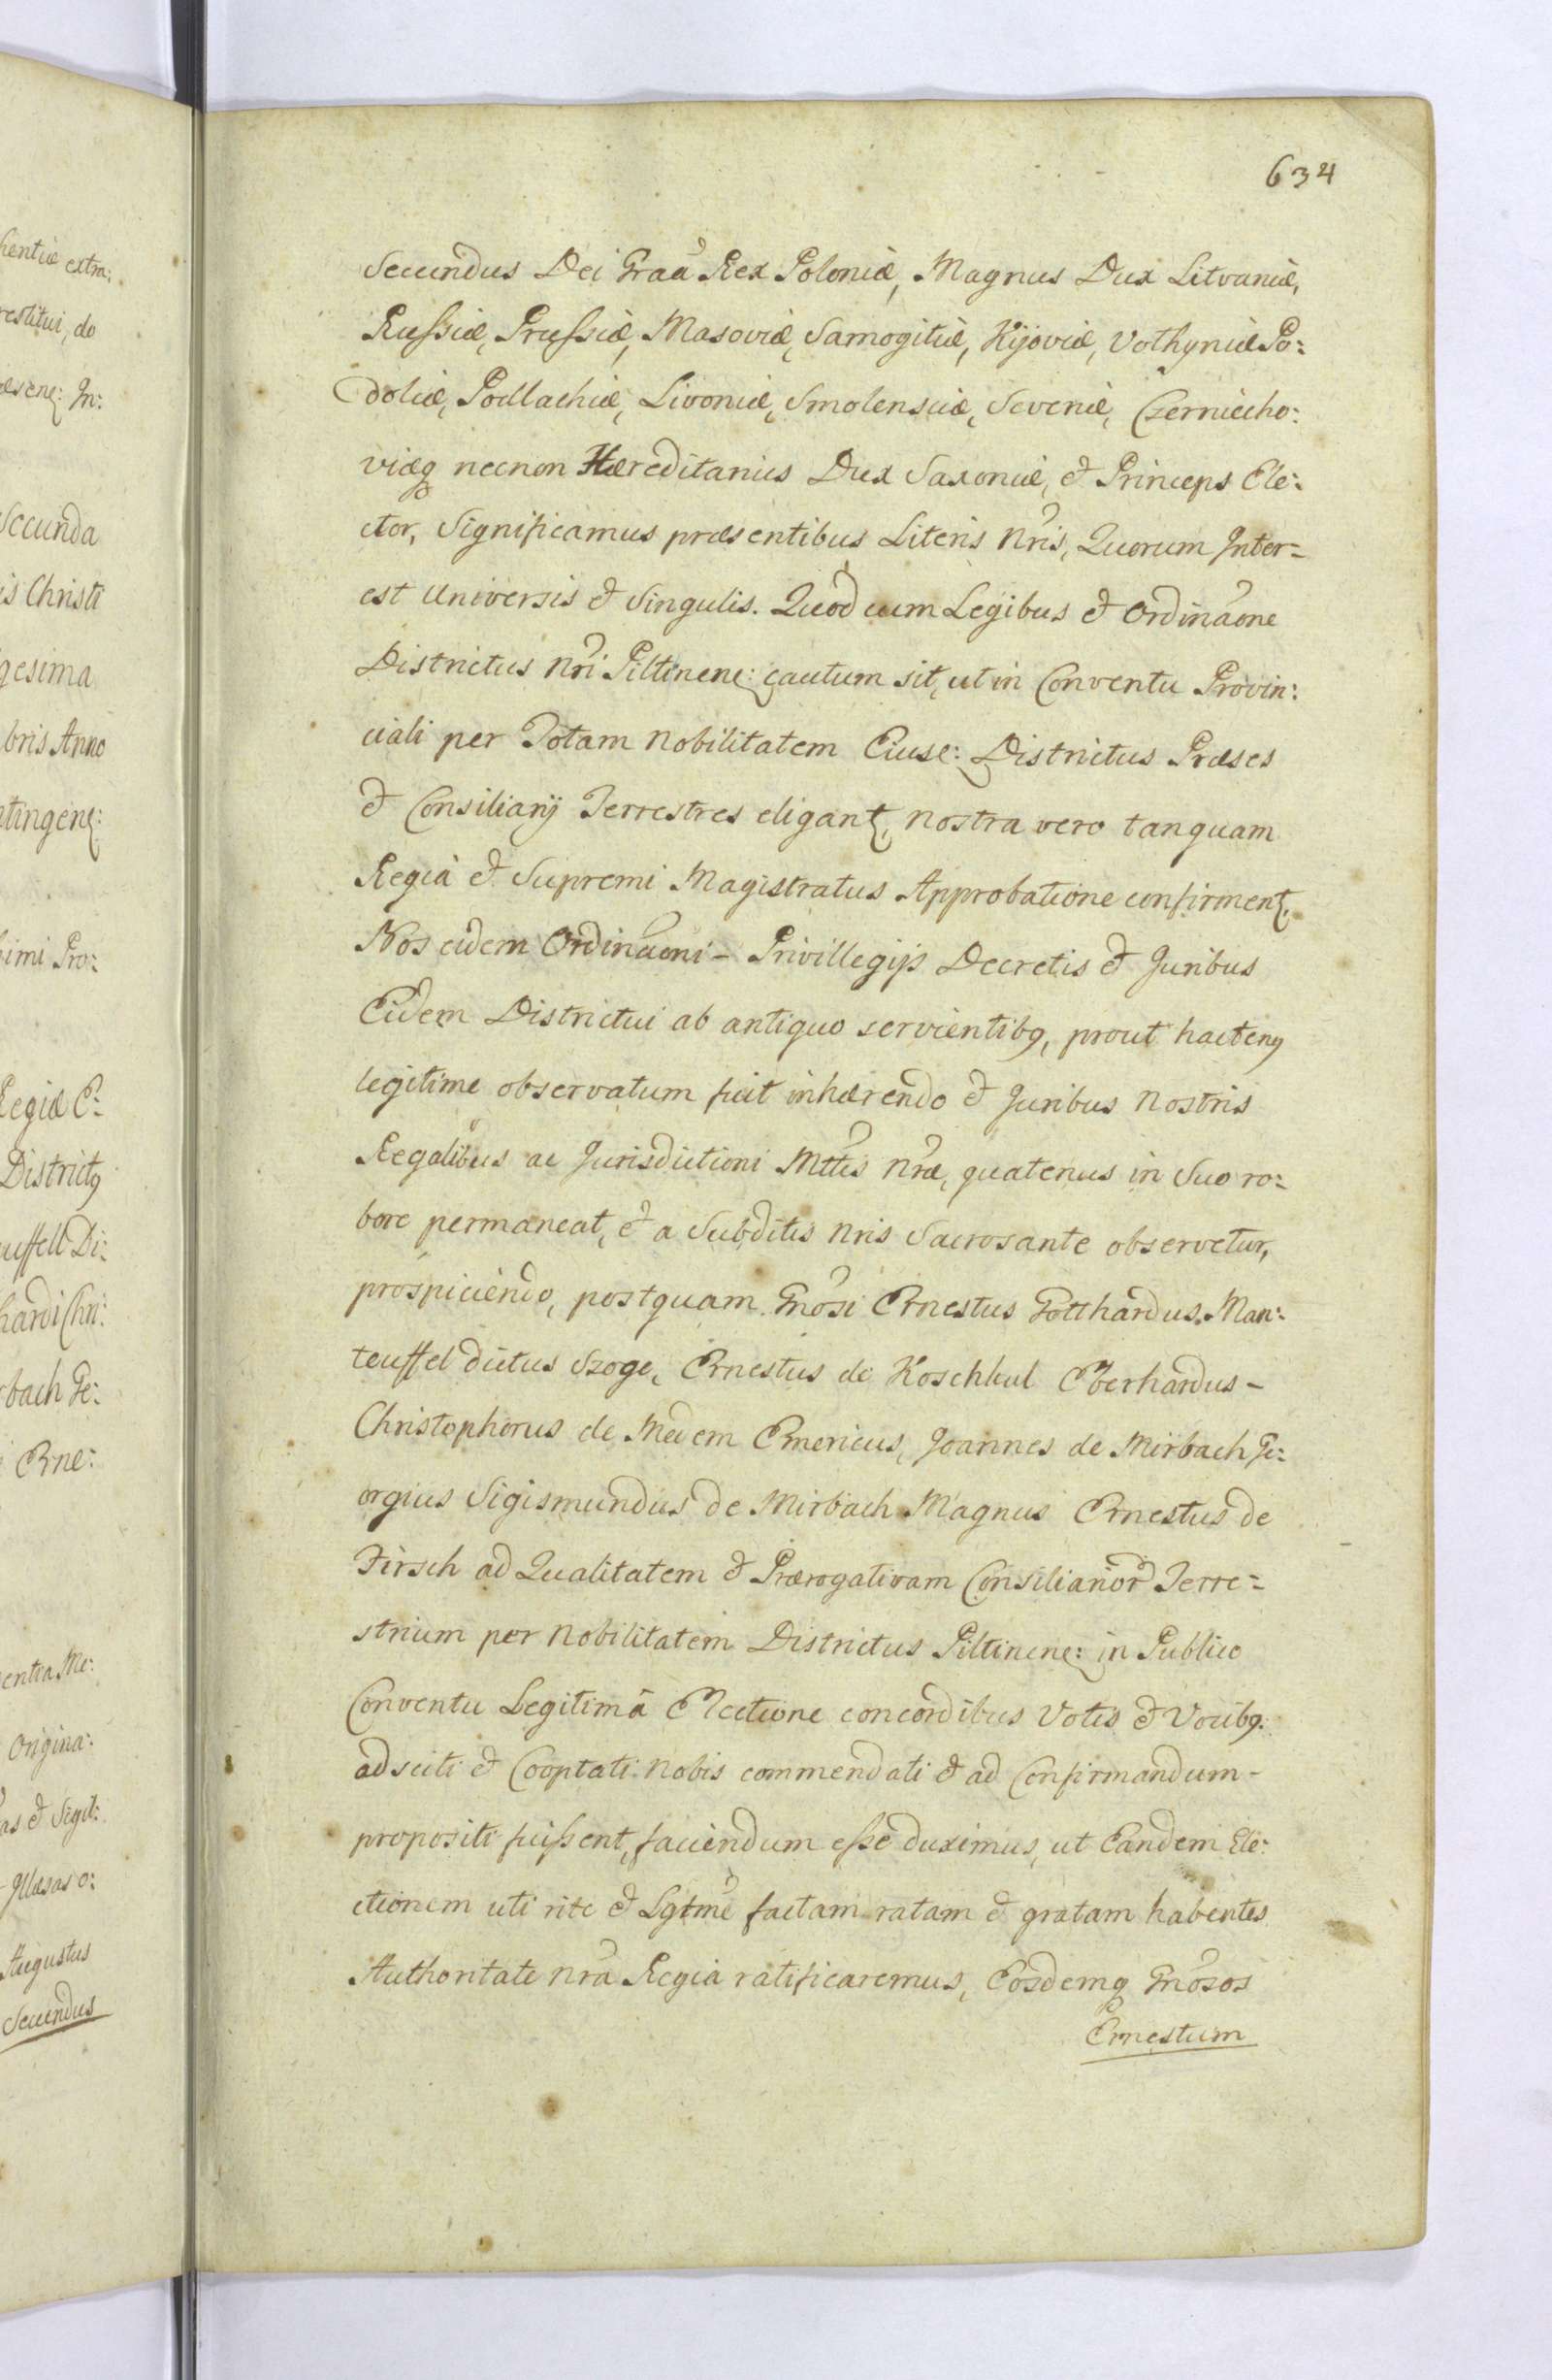 634
Secundus Dei Graã Rex Poloniæ, Magnus Dux Litvaniæ,
Russiæ, Prussiæ, Masoviæ, Samogitiæ, Kijoviæ, Volhyniæ Po:
doliæ, Podlachiæ, Livoniæ, Smolensciæ, Seveniæ, Czerniecho:
viæq necnon Hæreditarius Dux Saxoniæ, et Princeps Ele:
ctor, Significamus præsentibus Literis Nris, Quorum Inter-
est Universis et Singulis. Quod cum Legibus et Ordinãone
Districtus Nri Piltinen: cautum sit, ut in Conventu Provin:
ciali per Totam Nobilitatem Eiusd: Districtus Præses
et Consiliarij Terrestres eligant, nostra vero tanquam
Regiâ et Supremi Magistratus Approbatione confirment,
Nos eidem Ordinãoni - Privillegijs Decretis et Juribus
Eidem Districtui ab antiquo servientibq, prout hactenq
legitime observatum fuit inhærendo et Juribus Nostris
Regalibus ac Jurisdictioni Mttis Nræ, quatenus in Suo ro:
bore permaneat, et a Subditis Nris Sacrosante observetur,
prospiciendo, postquam Gnosi Ernestus Gotthardus Man:
teuffel dictus Szoge, Ernestus de Koschkul Eberhardus -
Christophorus de Medem Emericus, Joannes de Mirbach Ge:
orgius Sigismundus de Mirbach Magnus Ernestus de
Firsch ad Qualitatem et Prærogativam Consiliarior Terre-
strium per Nobilitatem Districtus Piltinen: in Publico
Conventu Legitimâ Electione concordibus Votis et Vocibq.
adsciti et Cooptati nobis commendati et ad Confirmandum -
propositi fuissent, faciendum esse duximus, ut Eandem Ele:
ctionem uti rite et Lgtme factam ratam et gratam habentes
Authoritate Nra Regia ratificaremus, Eosdemq Gnosos
Ernestum